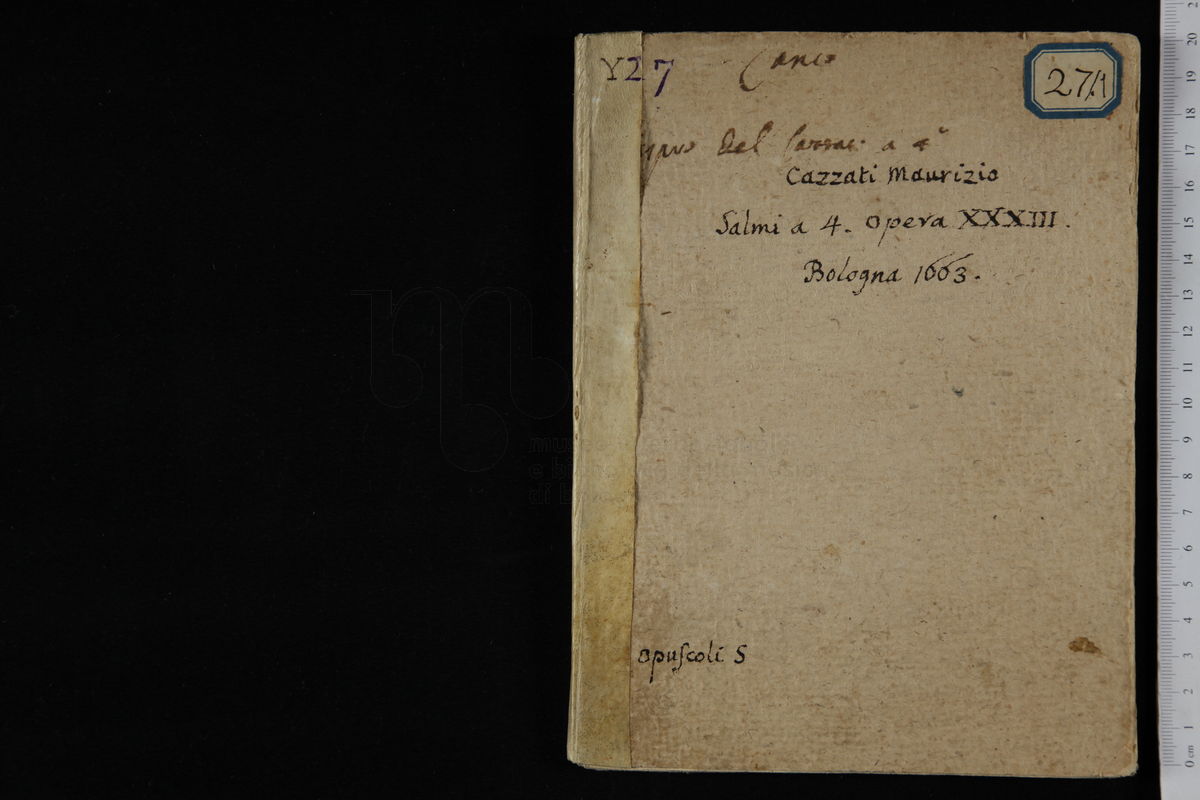 Y27
Canto
27/1
del a 4º
Cazzati Maurizio
Salmi a 4. Opera XXXIII.
Bologna 1663.
opuſcoli 5
0 cm 1 2 3 4 5 6 7 8 9 10 11 12 13 14 15 16 17 18 19 20 2